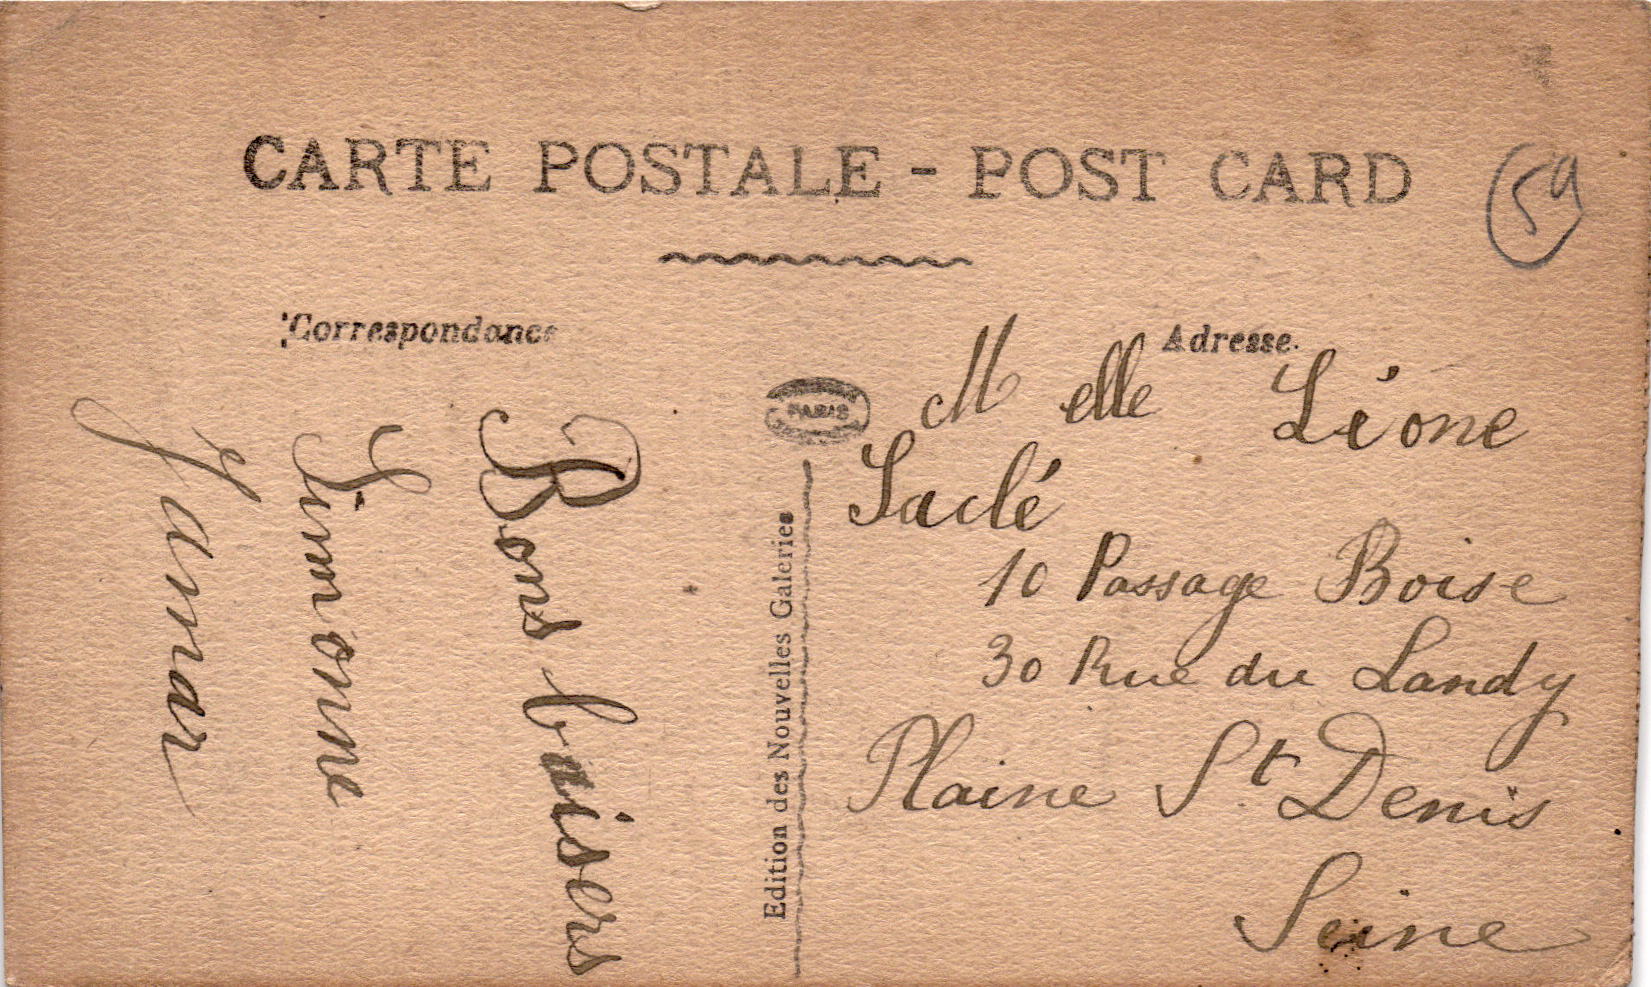 CARTE POSTALE - POST CARD
59
Correspondance
Adresse.
PARIS
Edition des Nouvelles Galeries
Bons baisers
Simone
M elle Léone
Saclé
10 Passage Boise
30 Rue du Landy
Plaine St Denis
Seine